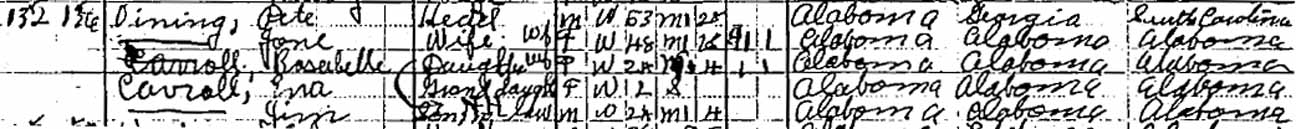 132 Dining, Pete Head M W 53 M 25 Alabama Georgia South Carolina
Jane Wife F W 48 M 911 Alabama Alabama Alabama
Carroll, Rosabelle Daughter F W 24 M 4 1 1 Alabama Alabama Alabama
Carroll, Ena Grand daught F W 12 S Alabama Alabama Alabama
Jim Son In law M W 24 M 4 Alabama Alabama Alabama